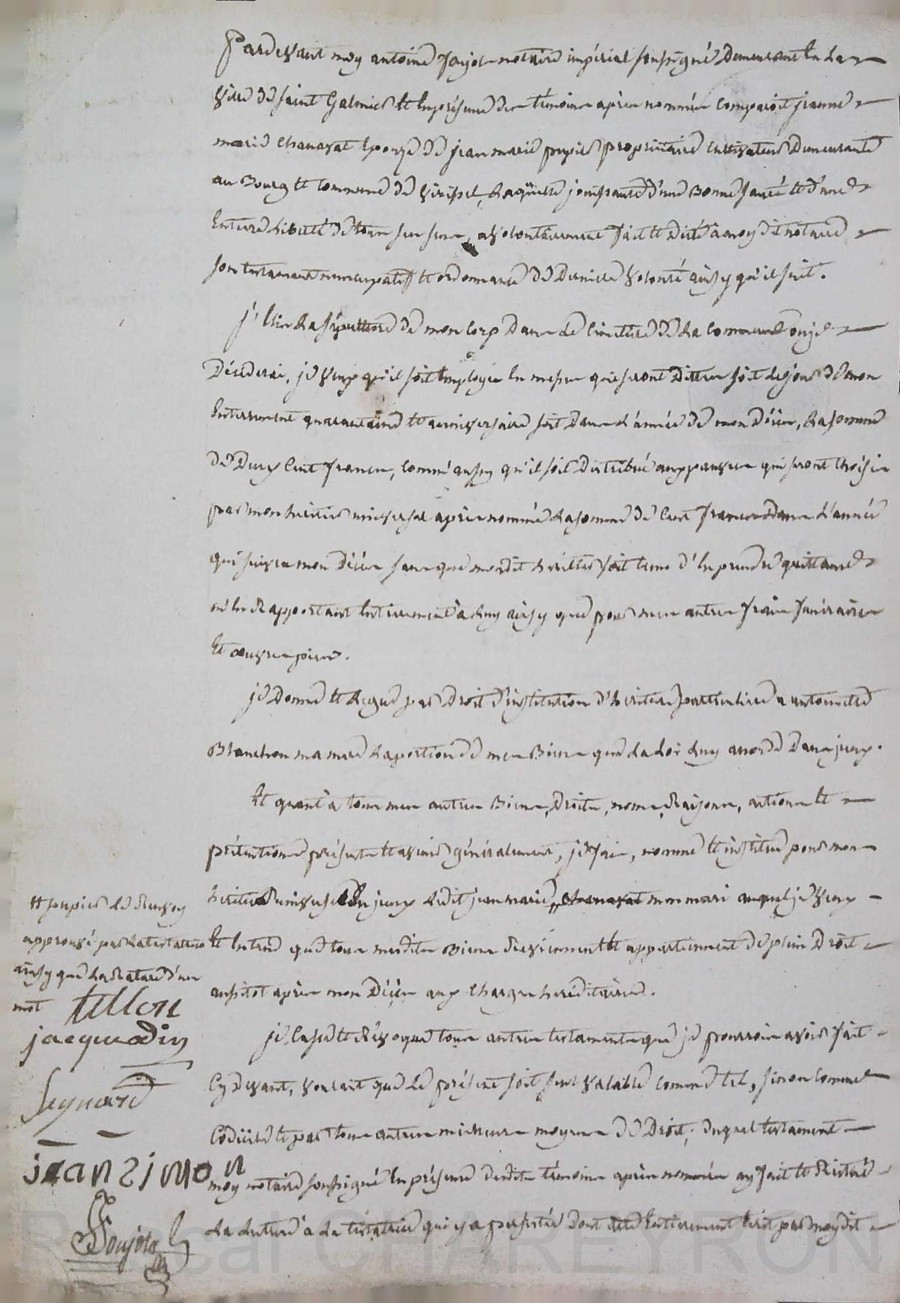 Pardevant moy antoine Foujol notaire impérial soussigné Demeurant En La
Ville de Saint Galmier Et En présence des témoins après nommés Comparoit jeanne
marie Chanavat Epouze de jean marie pupier propriétaire Cultivateur Demeurante
au Bourg Et Commune de Viricel, Laquelle jouissante d'une Bonne santé Et d'une
Entiere Liberté de tous ses sens, a volontairement fait Et Dicté à moy dit notaire
son testament nuncupatif Et ordonnance de Derniere volonté ainsy qu'il suit.
j'Elis La sépulture de mon Corp Dans Le Cimetiere de La Commune où je
Décéderai, je veux qu'il soit Employé En messes qui seront Dittes soit Le jour de mon
Enterrement quarantaine Et anniversaire soit Dans L'année de mon Décès, La somme
de Deux Cent francs, Comme aussy qu'il soit Distribué aux pauvres qui seront Choisis
par mon héritier universel après nommé La somme de Cent francs Dans L'année
qui suivra mon Décès sans que mondit héritier soit tenu d'En prendre quittance
m'En Rapportant Entierement à Luy ainsy que pour mes autres frais funéraires
Et œuvres pies.
je Donne Et Legue par Droit d'institution d'héritiere particuliere a antoinette
Blanchon ma mere La portion de mes Biens que La Loi Luy accorde Dans jceux.
Et quant à tous mes autres Biens, Droits, noms, Raisons, actions Et
prétentions présents Et avenir généralement, je fais, nomme Et institue pour mon
héritier universel En jceux Ledit jean marie Chanavat mon mari auquel je veux
Et Entend que tous mesdits Biens Reviennent Et appartiennent de plein Droit
aussitot après mon Décès aux Charges héréditaires.
je Casse Et Révoque tous autres testaments que je pourrois avoir fait
Cy devant, voulant que Le présent soit seul valable Comme tel, sinon Comme
Codicile Et par tous autres meilleurs moyens de Droit; duquel testament
moy notaire soussigné En présence desdits témoins après nommés ay fait Et Réitéré
La Lecture à La testatrice qui y a persisté Dont acte Entierement Ecrit par moydit
# pupier Le Renvoy
approuvé par La testatrice
ainsy que La Rature d'un
mot tillon
jacquodin
Seynard
jean simon
Foujols
Pascal CHAREYRON